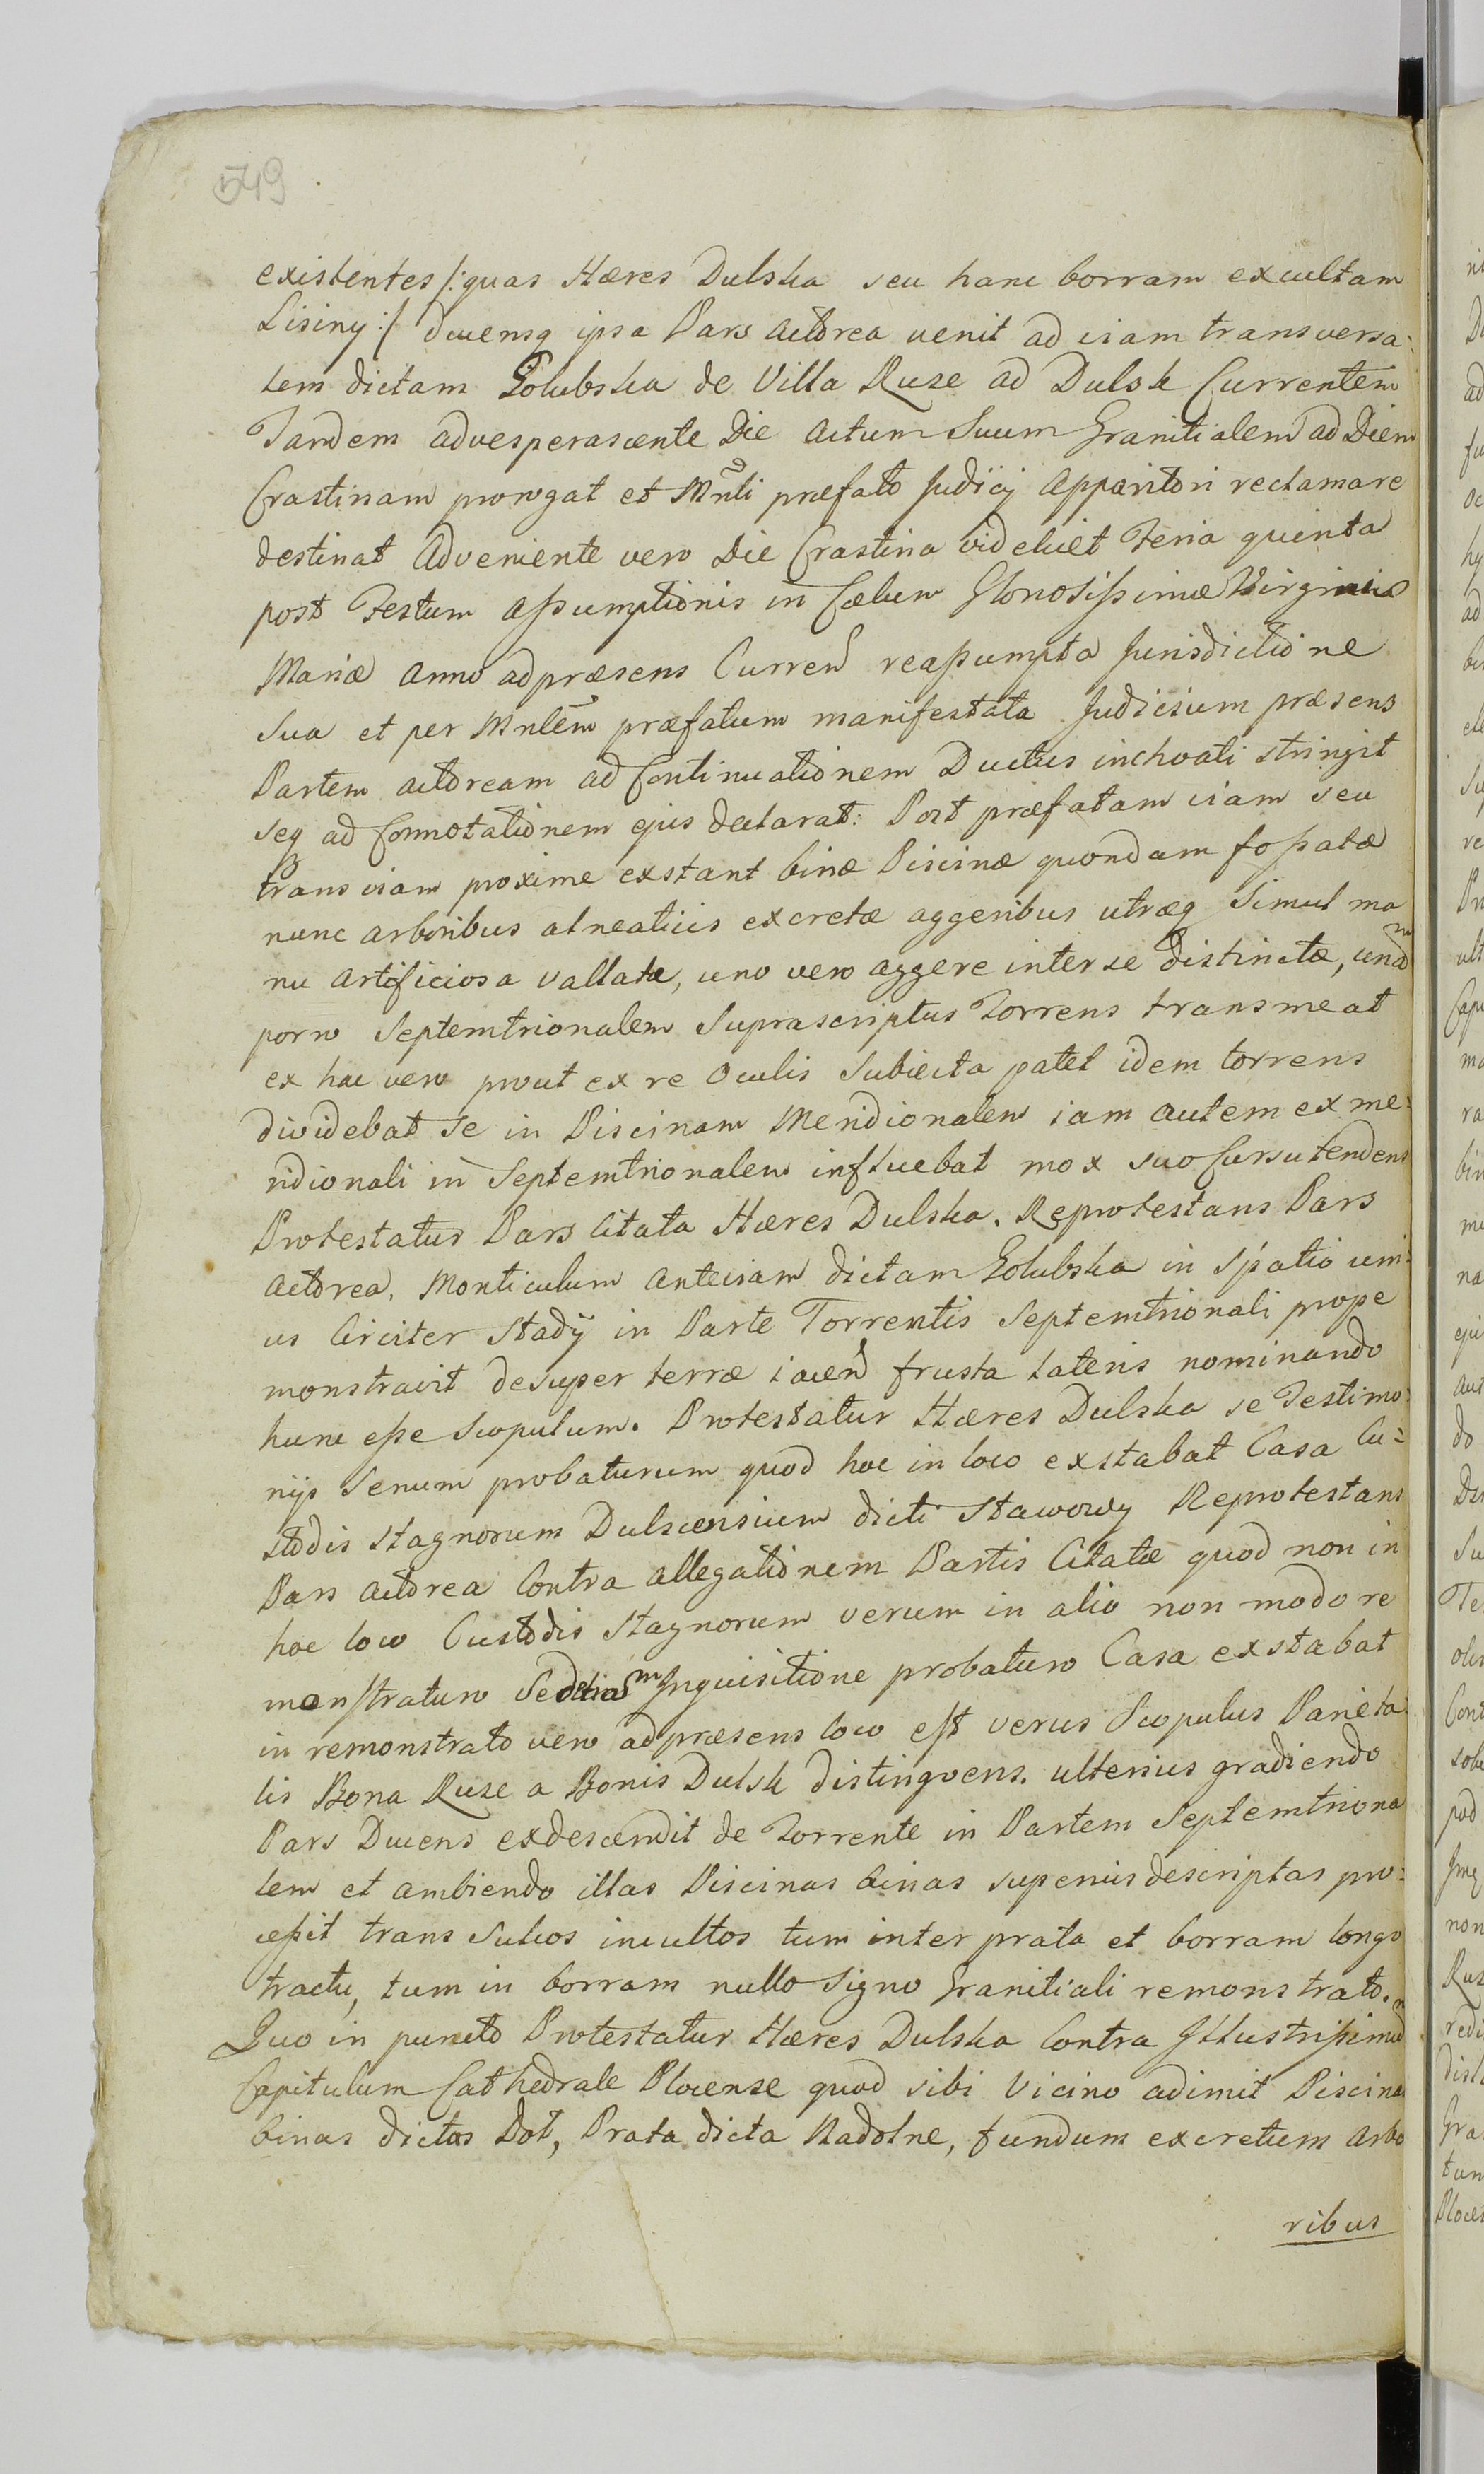 549
existentes /:quas Hæres Dulska seu hanc borram excultam
Lisiny:/ ducensq ipsa Pars Actorea venit ad viam transversa:
lem dictam Golubska de Villa Ruze ad Dulsk Currentem
Tandem advesperascente Die Actum Suum Granitialem ad Diem
Crastinam prorogat et Mnli præfato Judicij Apparitori reclamare
destinat Adveniente vero Die Crastina videlicet Feria quinta
post Festum Assumptionis in Cælum Gloriosissimæ Virginis
Mariæ Anno adpræsens Curren reassumpta Jurisdictione
Sua et per Mnlem præfatum manifestata Judicium præsens
Partem actoream ad Continuationem Ductus inchoati stringit
seq ad Connotationem ejus declarat: Post præfatam viam seu
trans viam proxime exstant binæ Piscinæ quondam fossatæ
nunc arboribus alneaticis excretæ aggeribus utræq simul ma
nu artificiosa vallatæ, uno vero aggere inter se distinctæ, unam
porro Septemtrionalem Suprascriptus Torrens transmeat
ex hac vero prout ex re Oculis Subiecta patet idem torrens
dividebat se in Piscinam Meridionalem iam autem ex me:
ridionali in Septemtrionalem influebat mox suo Cursu tendens
Protestatur Pars Citata Hæres Dulska. Reprotestans Pars
Actorea, Monticulum anteviam dictam Golubska in Spatio uni:
us Circiter Stadij in Parte Torrentis Septemtrionali prope
monstravit desuper terræ iacen frusta lateris nominando
hunc esse Scopulum. Protestatur Hæres Dulska se Testimo:
nijs Senum probaturum quod hoc in loco exstabat Casa Cu=
stodis Stagnorum Dulscensium dicti Stawowy Reprotestans
Pars actorea Contra allegationem Partis Citatæ quod non in
hoc loco Custodis Stagnorum verum in alio non modo re
monstraturo Sed etiam Inquisitione probaturo Casa exstabat
in remonstrato vero adpræsens loco est verus Scopulus Parieta:
lis Bona Ruze a Bonis Dulsk distingvens. ulterius gradiendo
Pars Ducens exdescendit de Torrente in Partem Septemtriona
lem et ambiendo illas Piscinas binas superius descriptas pro:
cessit trans Sulcos incultos tum inter prata et borram longo
tractu, tum in borram nullo Signo Granitiali remonstrato.
Quo in puncto Protestatur Hæres Dulska Contra Illustrissimum
Capitulum Cathedrale Plocense quod sibi Vicino adimit Piscina
binas dictas Dot, Prata dicta Radolne, fundum excretum arbo
ribus